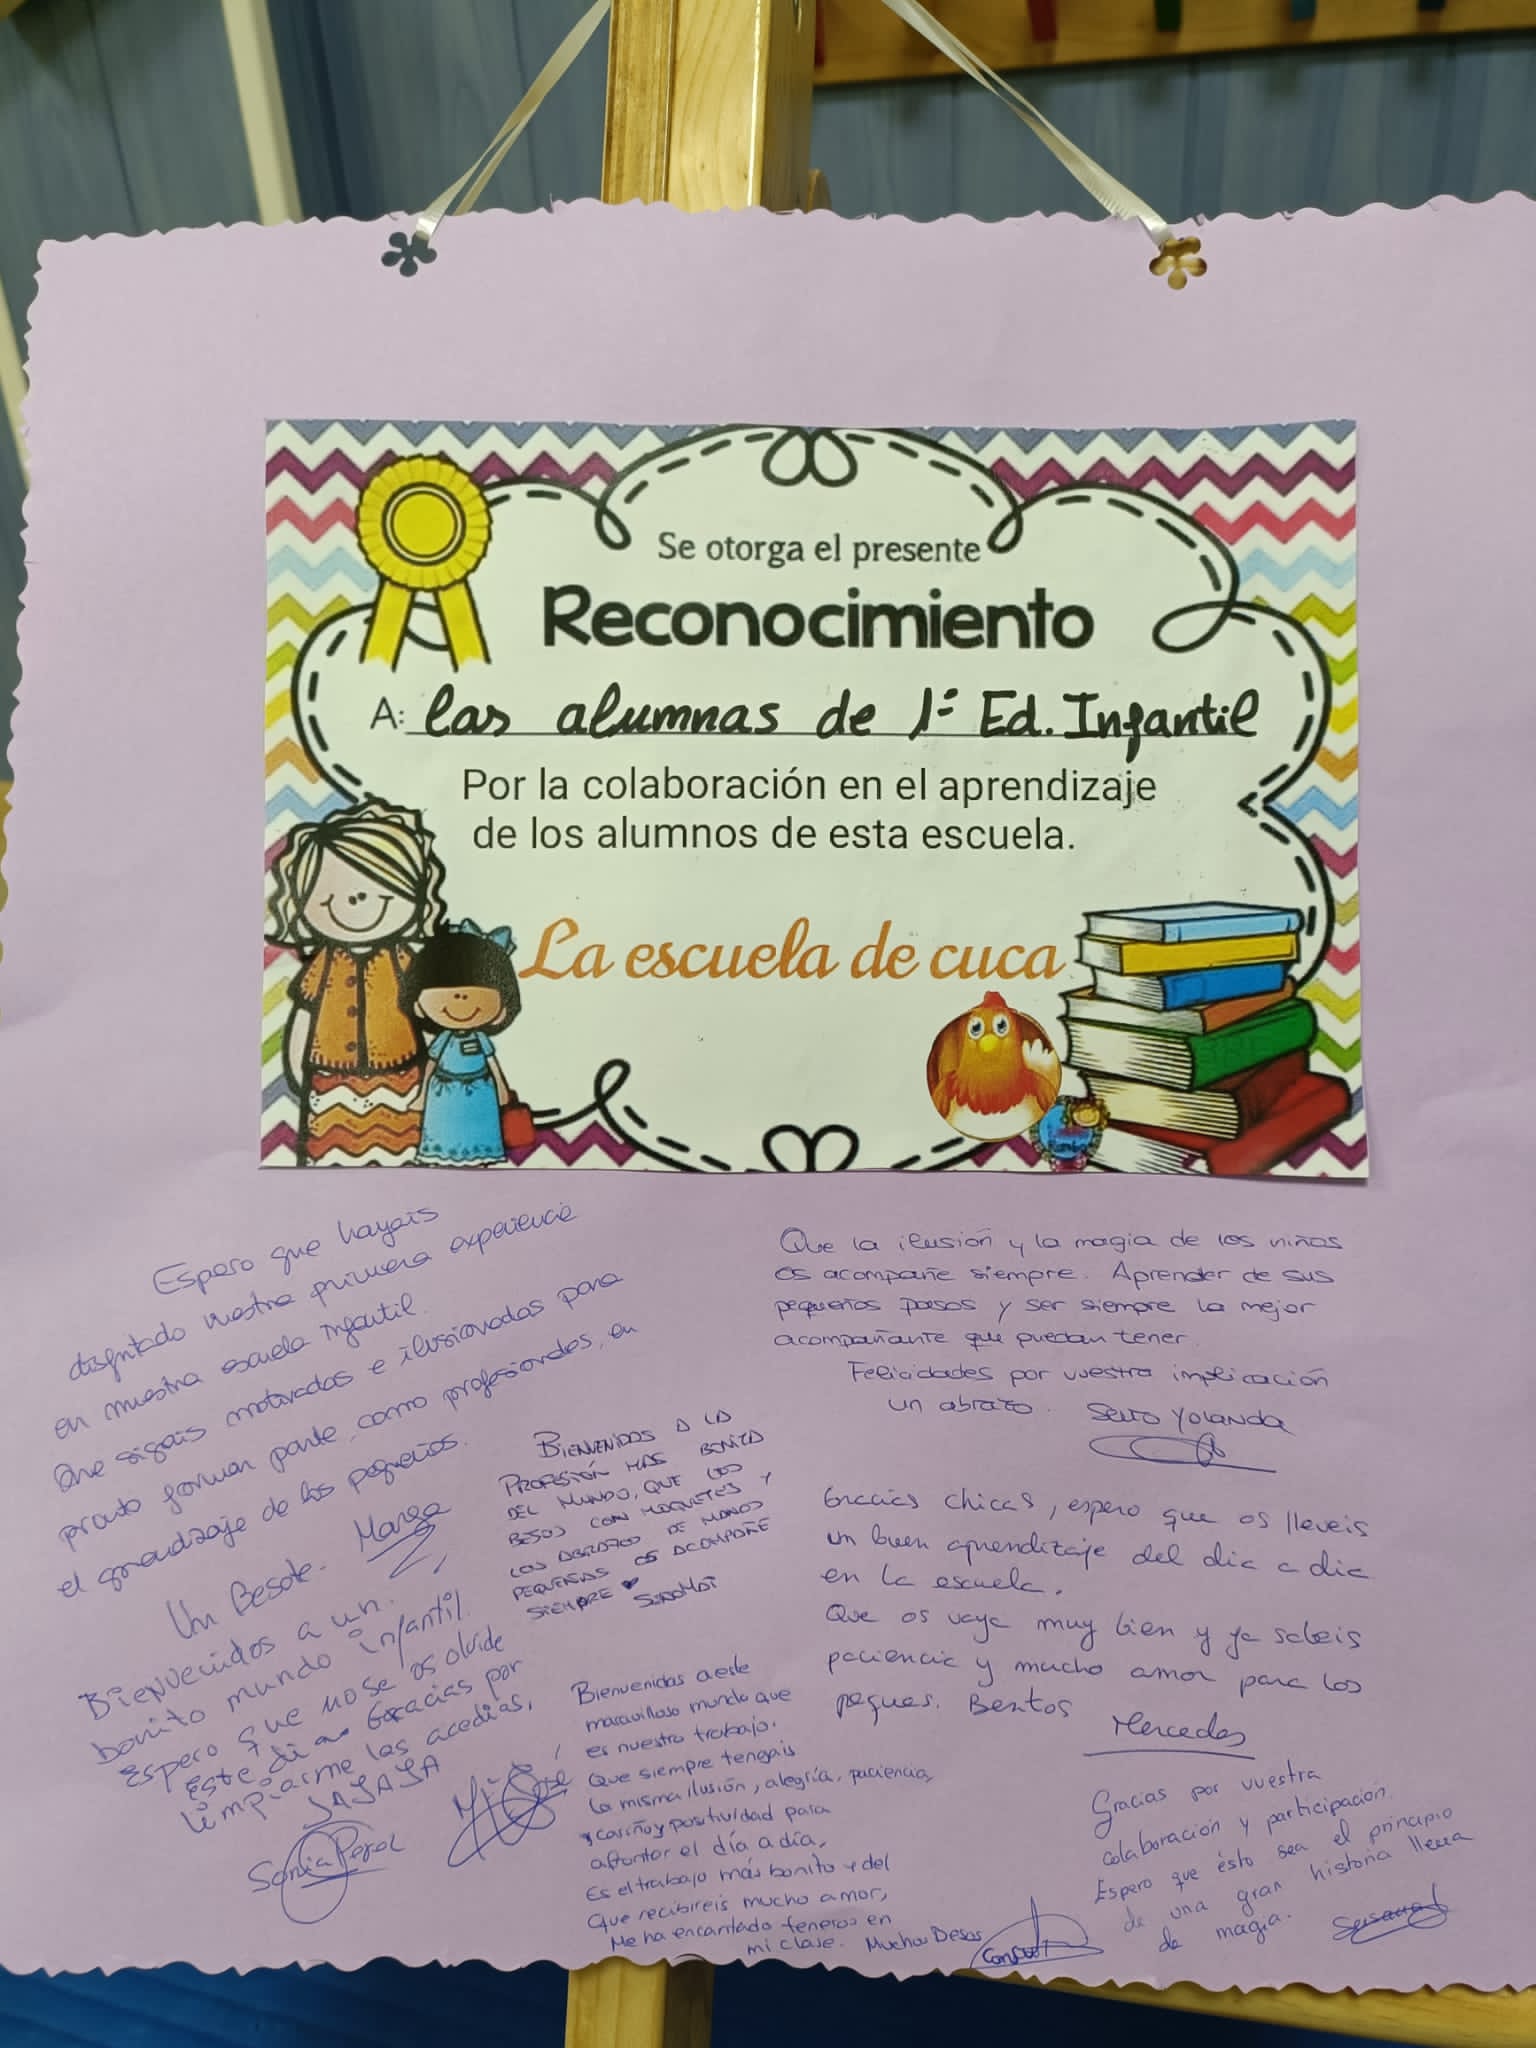 Se otorga el presente
Reconocimiento
A: las alumnas de 1º Ed. Infantil
Por la colaboración en el aprendizaje
de los alumnos de esta escuela.
La escuela de cuca
Espero que hayais
disfrutado vuestra primera experiencia
en nuestra escuela infantil.
Que sigais motivadas e ilusionadas para
pronto formar parte, como profesionales, en
el aprendizaje de los pequeños.
Un Besote. Marga
BIENVENIDOS A LA
PROFESIÓN MAS BONITA
DEL MUNDO, QUE LOS
BESOS CON MOQUETES Y
LOS ABRAZOS DE MANOS
PEQUEÑAS OS ACOMPAÑE
SIEMPRE ♥
Bienvenidos a un
bonito mundo infantil.
Espero que no se os olvide
este dia Gracias por
limpiarme las acedias,
JAJAJA
Sonia
Bienvenidas a este
maravilloso mundo que
es nuestro trabajo.
Que siempre tengais
la misma ilusión, alegría, paciencia,
y cariño y positividad para
afrontar el día a día,
Es el trabajo más bonito y del
que recibireis mucho amor,
Me ha encantado teneros en
mi clase. Muchos Besos
Que la ilusión y la magia de los niños
os acompañe siempre. Aprender de sus
pequeños pasos y ser siempre la mejor
acompañante que puedan tener.
Felicidades por vuestra implicación
un abrazo. Seño Yolanda
Gracias chicas, espero que os lleveis
un buen aprendizaje del dia a dia
en la escuela.
Que os vaya muy bien y ya sabeis
paciencia y mucho amor para los
peques. Besitos
Mercedes
Gracias por vuestra
colaboración y participación.
Espero que ésto sea el principio
de una gran historia llena
de magia. Susana